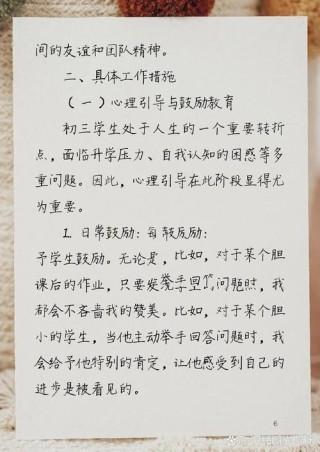 间的友谊和团队精神。
二、具体工作措施
（一）心理引导与鼓励教育
初三学生处于人生的一个重要转折
点，面临升学压力、自我认知的困惑等多
重问题。因此，心理引导在此阶段显得尤
为重要。
1. 日常鼓励：每
予学生鼓励。无论是，比如，对于某个胆
课后的作业，只要发 问题时，我
都会不吝啬我的赞美。比如，对于某个胆
小的学生，当他主动举手回答问题时，我
会给予他特别的肯定，让他感受到自己的
进步是被看见的。
6